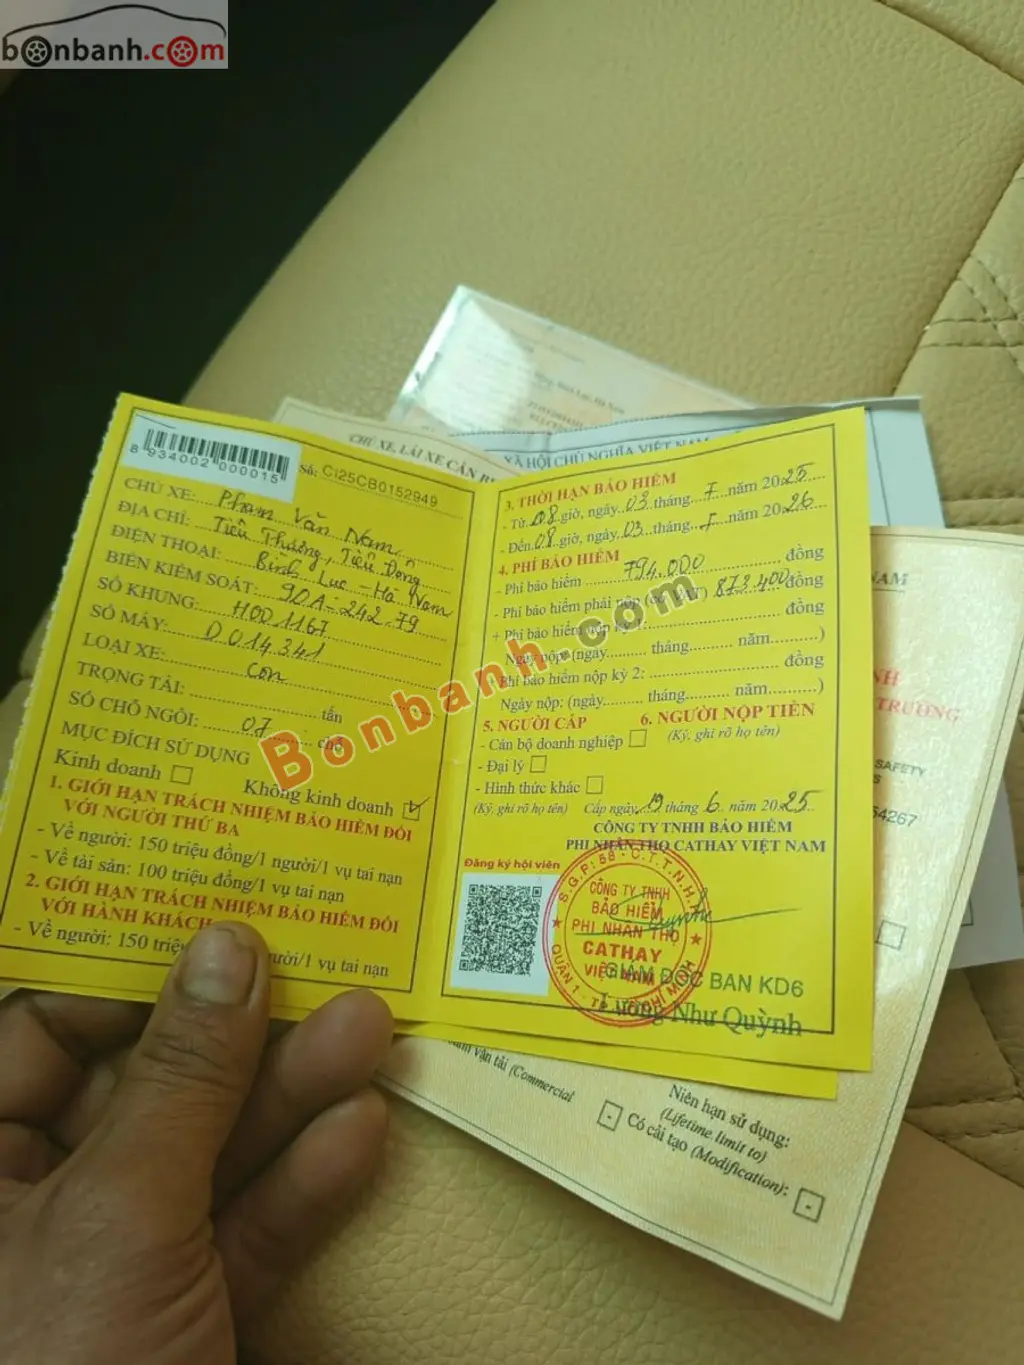 bonbanh.com
CHỦ XE, LÁI XE CẦN
XÃ HỘI CHỦ NGHĨA VIỆT NAM
8 934002 000015
Số: CI25CB0152949
CHỦ XE: Phạm Văn Nam
ĐỊA CHỈ: Tiêu Thượng, Tiêu Động
ĐIỆN THOẠI: Bình Lục - Hà Nam
BIỂN KIỂM SOÁT: 90A-242.79
SỐ KHUNG: H001167
SỐ MÁY: D014341
LOẠI XE: con
TRỌNG TẢI: tấn
SỐ CHỖ NGỒI: 07 chỗ
MỤC ĐÍCH SỬ DỤNG
Kinh doanh Không kinh doanh
1. GIỚI HẠN TRÁCH NHIỆM BẢO HIỂM ĐỐI
VỚI NGƯỜI THỨ BA
- Về người: 150 triệu đồng/1 người/1 vụ tai nạn
- Về tài sản: 100 triệu đồng/1 vụ tai nạn
2. GIỚI HẠN TRÁCH NHIỆM BẢO HIỂM ĐỐI
VỚI HÀNH KHÁCH
- Về người: 150 triệu người/1 vụ tai nạn
3. THỜI HẠN BẢO HIỂM
- Từ 08 giờ, ngày 03 tháng 7 năm 2025
- Đến 08 giờ, ngày 03 tháng 7 năm 2026
4. PHÍ BẢO HIỂM
- Phí bảo hiểm 794.000 đồng
- Phí bảo hiểm phải nộp (có VAT) 873.400 đồng
+ Phí bảo hiểm nộp kỳ 1: đồng
Ngày nộp: (ngày tháng năm )
+ Phí bảo hiểm nộp kỳ 2: đồng
Ngày nộp: (ngày tháng năm )
5. NGƯỜI CẤP 6. NGƯỜI NỘP TIỀN
- Cán bộ doanh nghiệp (Ký, ghi rõ họ tên)
- Đại lý
- Hình thức khác
(Ký, ghi rõ họ tên) Cấp ngày 19 tháng 6 năm 2025
CÔNG TY TNHH BẢO HIỂM
PHI NHÂN THỌ CATHAY VIỆT NAM
Đăng ký hội viên
S.G.P: 58 - C.T.T.N.H.H
CÔNG TY TNHH
BẢO HIỂM
PHI NHÂN THỌ
CATHAY
VIỆT NAM
QUẬN 1 - TP. HỒ CHÍ MINH
GIÁM ĐỐC BAN KD6
Lương Như Quỳnh
Bonbanh.com
NAM
TRƯỜNG
SAFETY
54267
vận tải (Commercial
Niên hạn sử dụng:
(Lifetime limit to)
Có cải tạo (Modification):